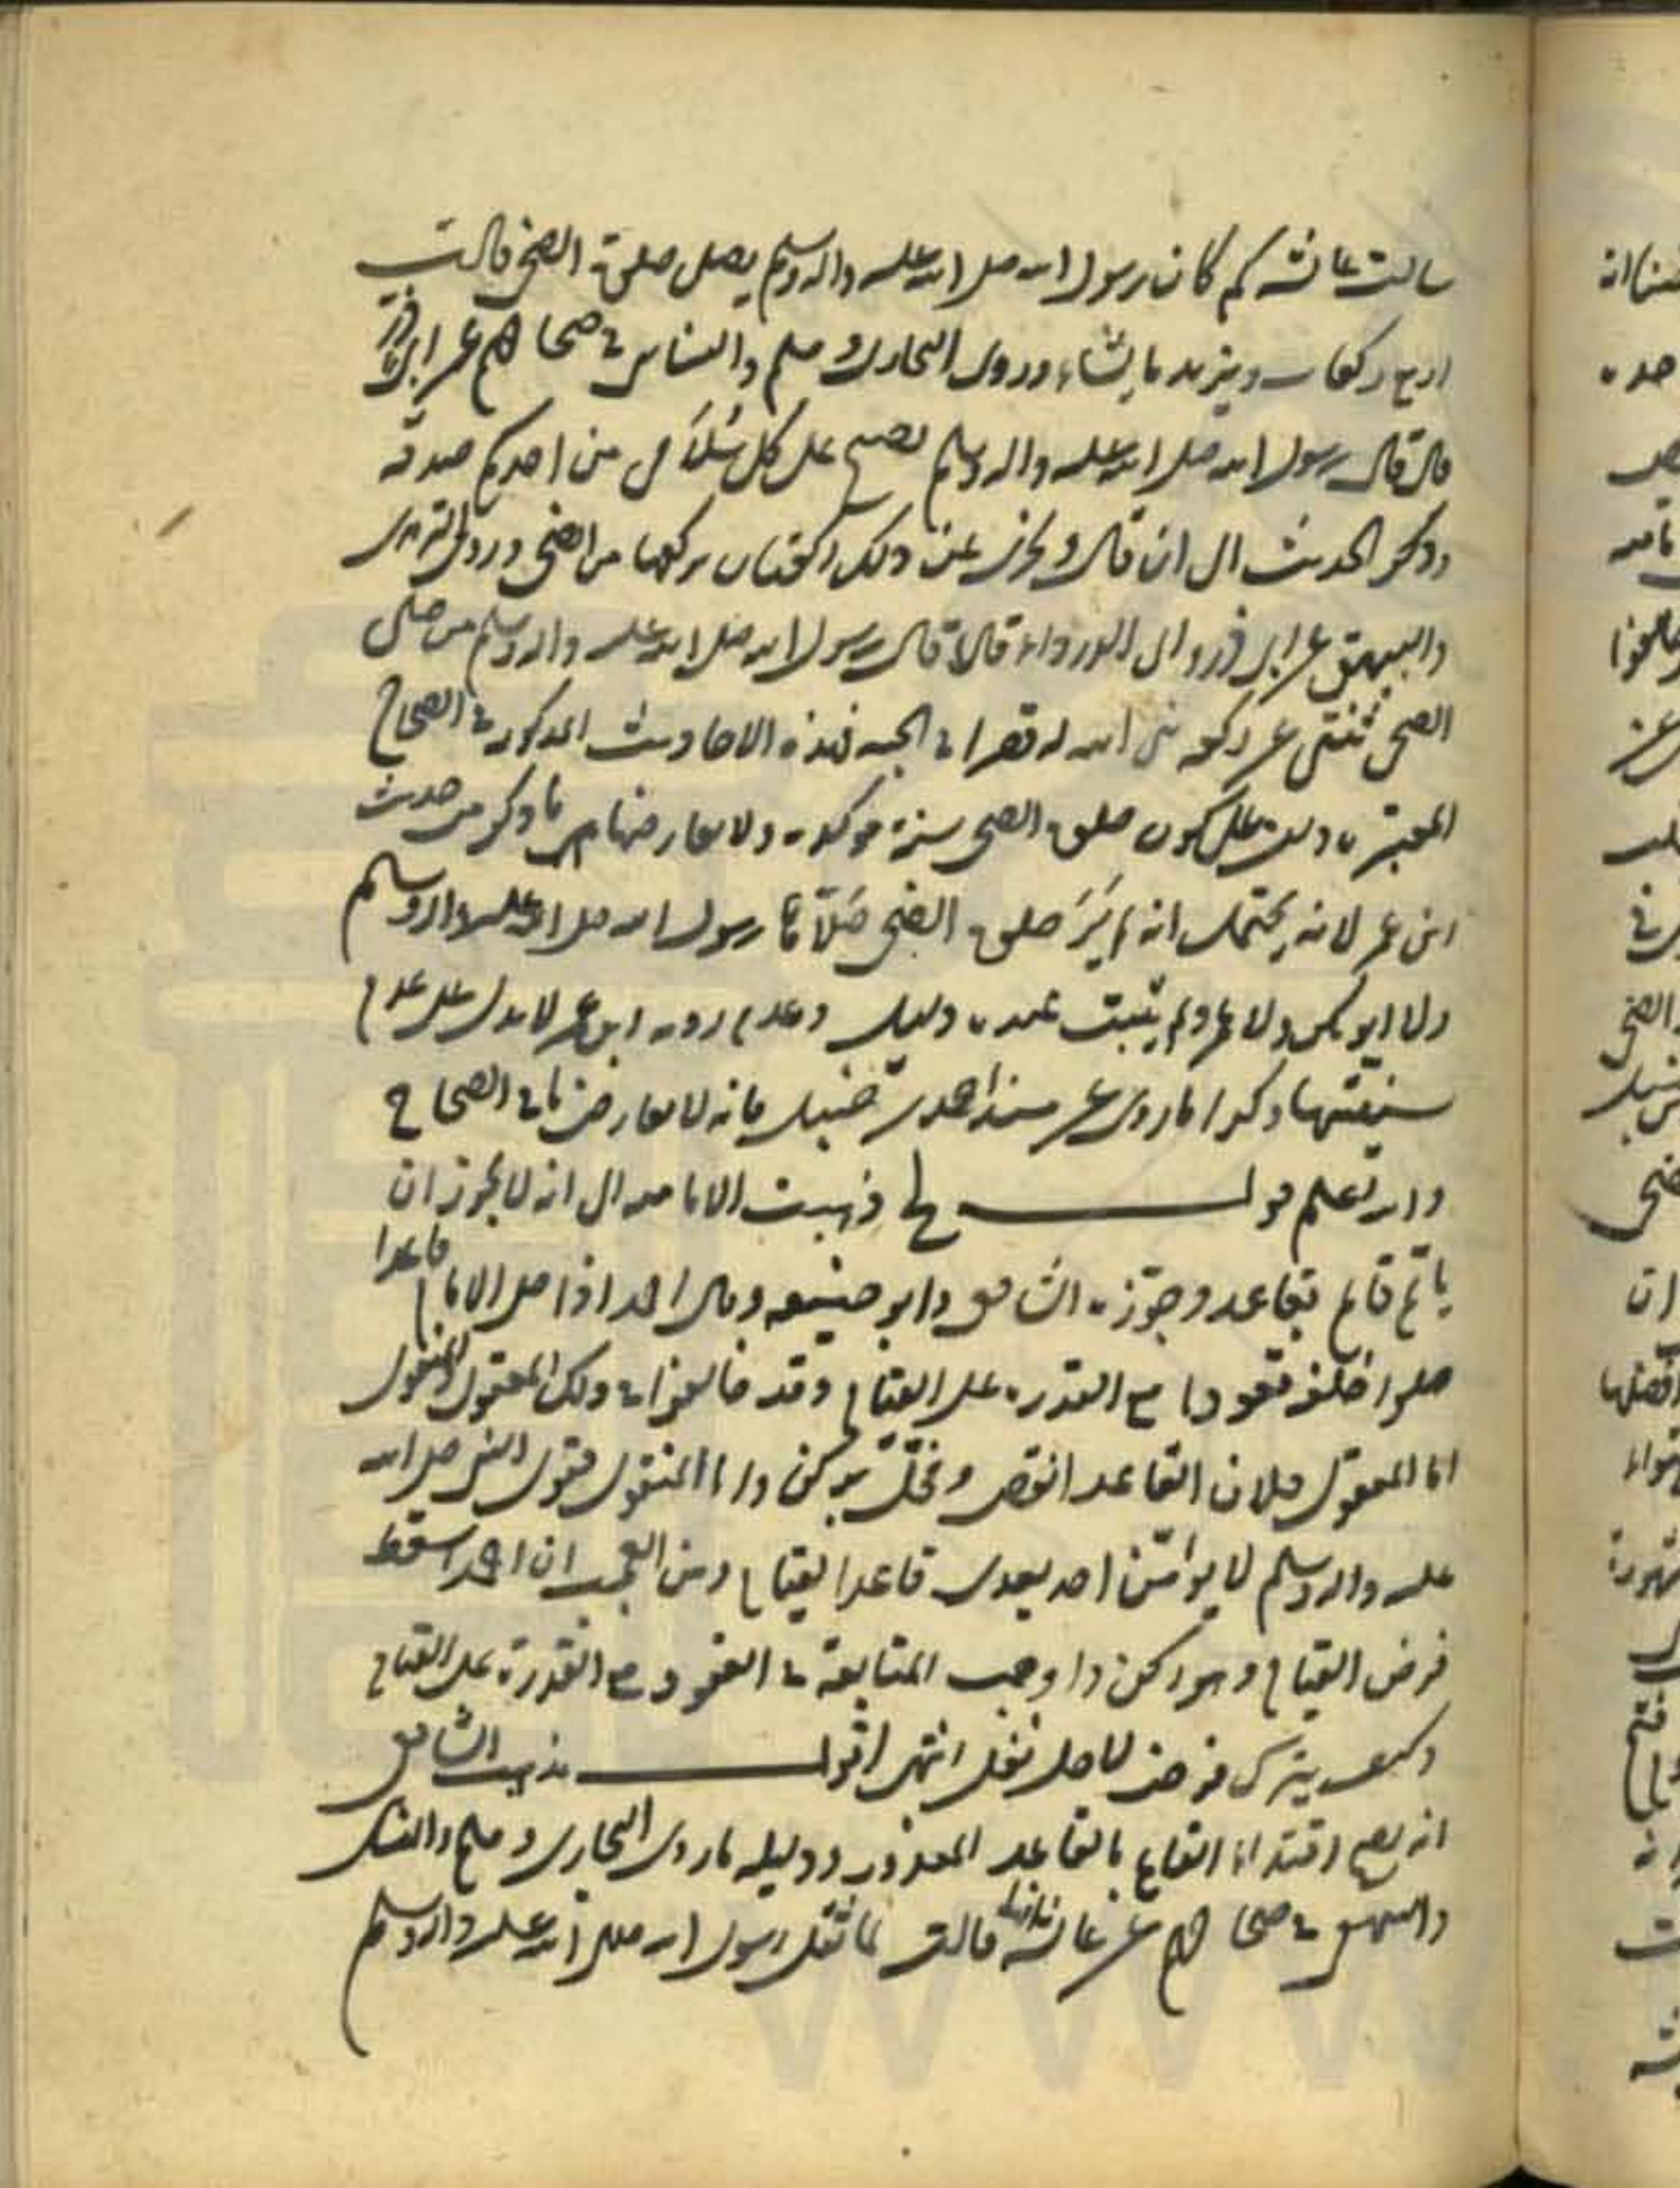 سالت عائشه كم كان رسول الله صلى الله عليه واله وسلم يصلى صلوة الضحى قالت
اربع ركعات ويزيد ما يشاء وروى البخارى ومسلم والنسائى فى صحاحهم عن ابى ذر
قال قال رسول الله صلى الله عليه واله وسلم يصبح على كل سُلامى من احدكم صدقه
وذكر الحديث الى ان قال ويجزى عن ذلك ركعتان يركعهما من الضحى وروى الترمذى
والبيهقى عن ابى ذر وابى الدرداء قالا قال رسول الله صلى الله عليه واله وسلم من صلى
الضحى ثنتى عشر ركعه بنى الله له قصرا فى الجنه فهذه الاحاديث المذكوره فى الصحاح
المعتبره دليل على كون صلوة الضحى سنة موكده ولا يعارضها ما ذكر من حديث
ابن عمر لانه يحتمل انه لم يَرَ صلوة الضحى صَلّاها رسول الله صلى الله عليه واله وسلم
ولا ابو بكر ولا عمر ولم يثبت عنده دليل وعدم رويه ابن عمر لا يدل على عدم
سنيتها وكذا ما روى عن مسند احمد بن حنبل فانه لا يعارض ما فى الصحاح
والله تعلم قوله ذهبت الاماميه الى انه لا يجوز ان
ياتم قائم بقاعد وجوّزه الشافعى وابو حنيفه وقال احمد اذا صلى الامام قاعدا
صلوا خلفه قعودا مع القدره على القيام وقد خالفوا فى ذلك المعقول والمنقول
اما المعقول فلان القاعد انقص ومخلّ بركن واما المنقول فقول النبى صلى الله
عليه واله وسلم لا يوامّنّ احد بعدى قاعدا بقيام ومن العجب ان احمد اسقط
فرض القيام وهو ركن واوجب المتابعة فى القعود مع القدرة على القيام
وكيف يترك فرض لاجل نفل انتهى اقول مذهب الشافعى
انه يصح اقتداء القائم بالقاعد المعذور ودليله ما روى البخارى ومسلم والنسائى
والبيهقى فى صحاحهم عن عائشه قالت لما ثقل رسول الله صلى الله عليه واله وسلم